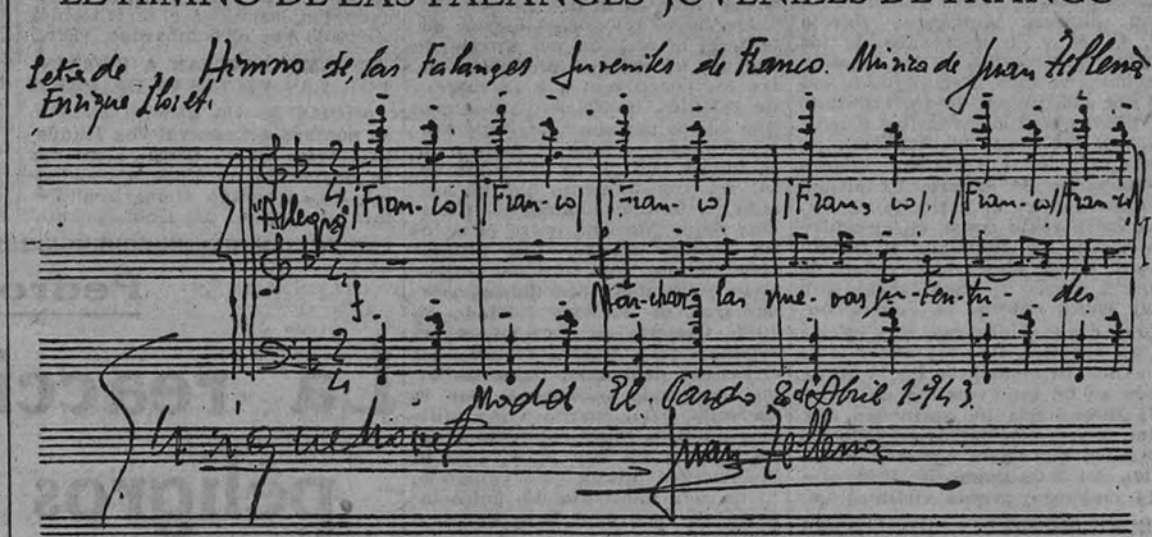 EL HIMNO DE LAS FALANGES JUVENILES DE FRANCO
Letra de Enrique Lloret. Himno de las Falanges Juveniles de Franco. Música de Juan Tellería
"Allegro"
¡Fran-co! ¡Fran-co! ¡Fran-co! ¡Fran-co! ¡Fran-co! ¡Fran-co!
2/4
2/4
f
Mar-chan las nue-vas ju-ven-tu-des
2/4
Madrid El Pardo 8 de Abril 1943
Enrique Lloret Juan Tellería